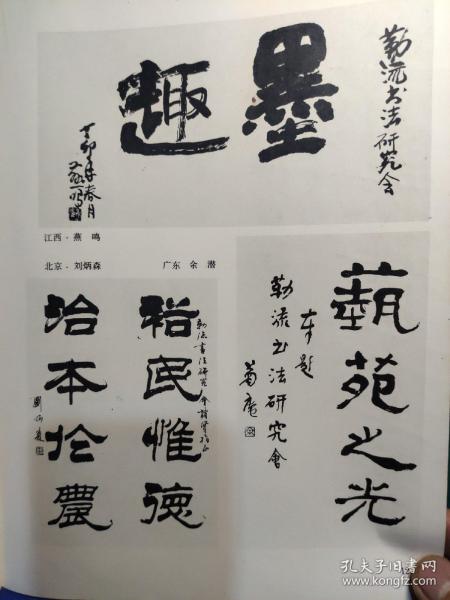 勒流书法研究会
墨趣
丁卯年春月
燕鸣
江西·燕 鸣
北京·刘炳森
广东 余 潜
蓺苑之光
奉题
勒流书法研究會
菊庵
裕民惟德
勒流書法研究會
治本於農
孔夫子旧书网
www.kongfz.com